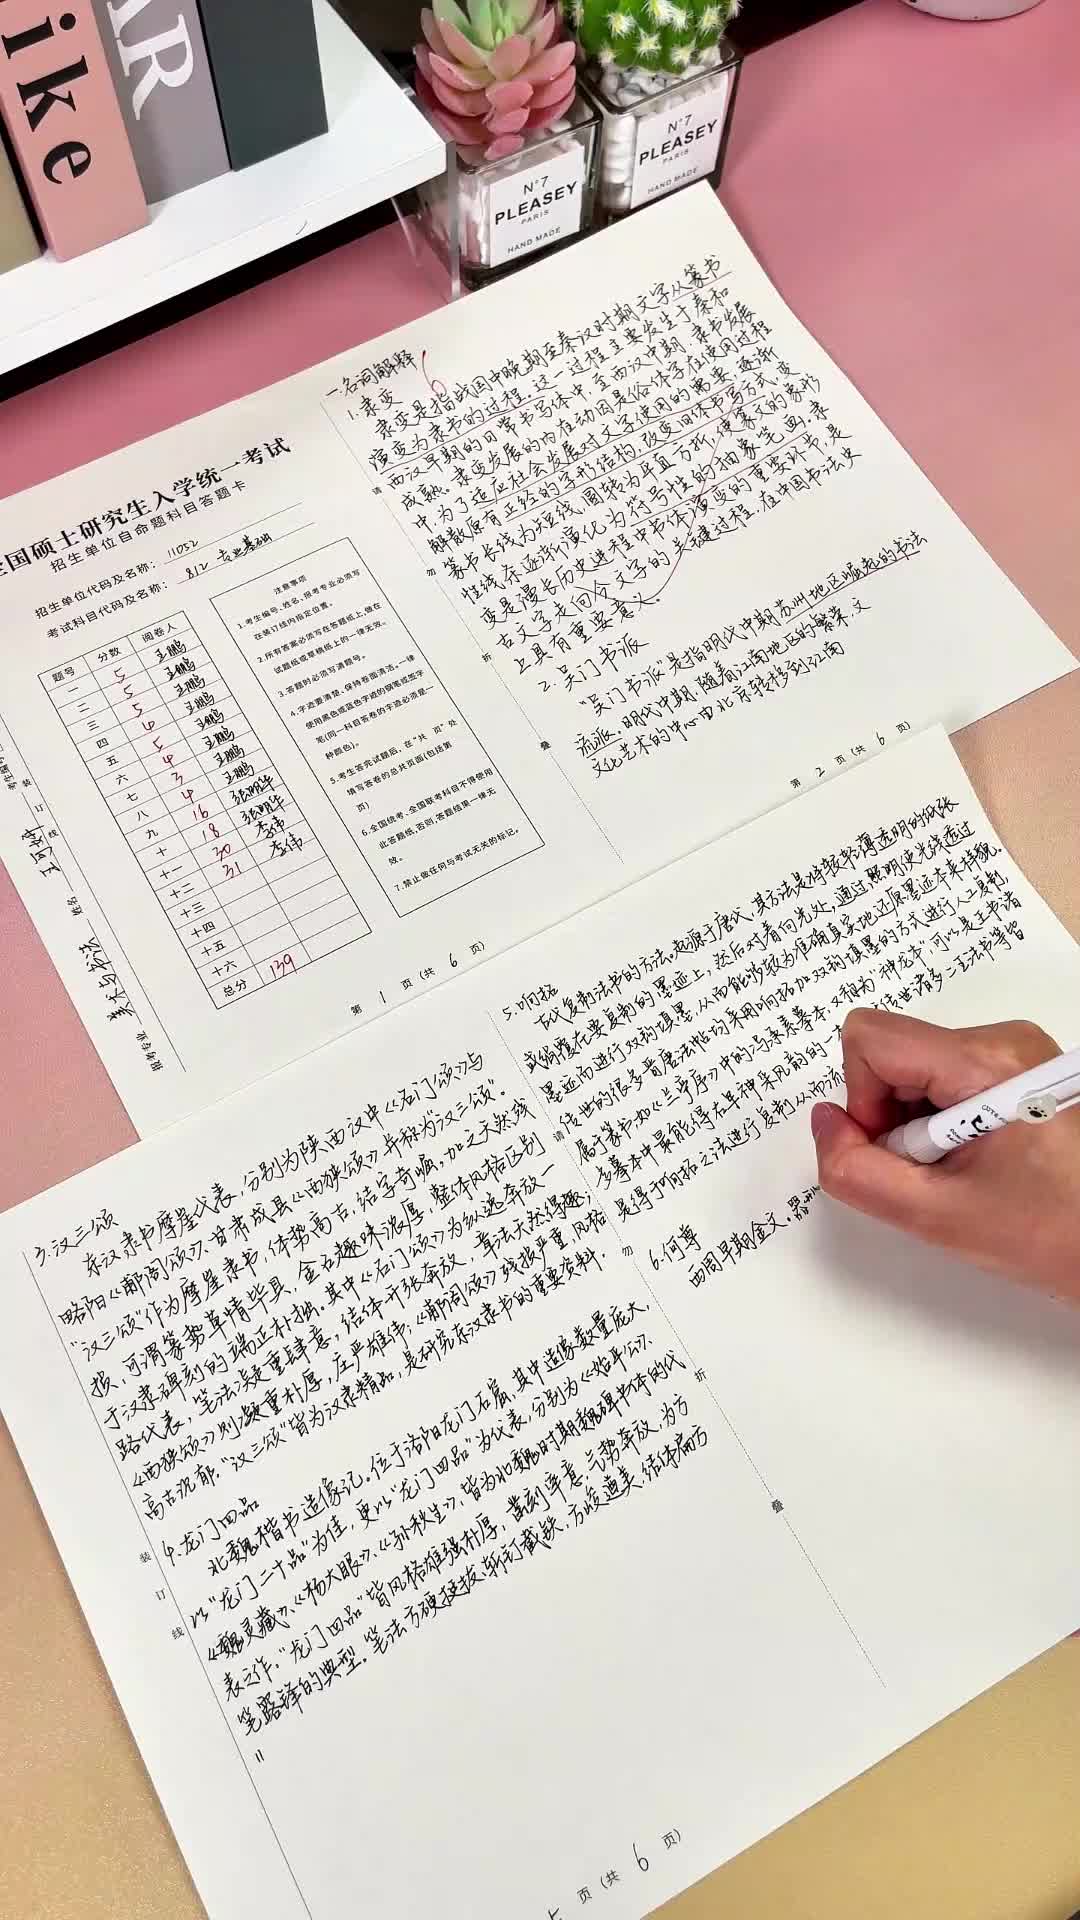 ike
AR
N°7
PLEASEY
PARIS
HAND MADE
N°7
PLEASEY
PARIS
HAND MADE
全国硕士研究生入学统一考试
招生单位自命题科目答题卡
招生单位代码及名称: 11052
考试科目代码及名称: 812 专业基础
题号 分数 阅卷人
一 5 王鹏
二 5 王鹏
三 5 王鹏
四 4 王鹏
五 5 王鹏
六 4 王鹏
七 3 王鹏
八 4 张明华
九 16 张明华
十 18 李伟
十一 30 李伟
十二 31
十三
十四
十五
十六
总分 139
注意事项
1.考生编号、姓名、报考专业必须写
在装订线内指定位置。
2.所有答案必须写在答题纸上,做在
试题纸或草稿纸上的一律无效。
3.答题时必须写清题号。
4.字迹要清楚、保持卷面清洁。一律
使用黑色或蓝色字迹的钢笔或签字
笔(同一科目答卷的字迹必须是一
种颜色)。
5.考生答完试题后,在“共 页”处
填写答卷的总共页面(包括第
页)
6.全国统考、全国联考科目不得使用
此答题纸,否则,答题结果一律无
效。
7.禁止做任何与考试无关的标记。
姓名:
报考专业 美术与书法
装
订
线
第 1 页 (共 6 页)
一.名词解释
6
1.隶变
隶变是指战国中晚期至秦汉时期文字从篆书
演变为隶书的过程。这一过程主要发生于秦和
西汉早期的日常书写体中,至西汉中期,隶书发展
成熟。隶变发展的内在动因是俗体字在使用过程
中,为了适应社会发展对文字使用的需要,逐渐
解散原有正绘的字形结构,改变旧体书写方式,变
篆书长线为短线,圆转为平直方折,使篆文的象形
性线条逐渐演化为符号性的抽象笔画。隶
变是漫长历史进程中书体演变的重要环节,是
古文字走向今文字的关键过程,在中国书法史
上具有重要意义。
2.吴门书派
“吴门书派”是指明代中期苏州地区崛起的书法
流派。明代中期,随着江南地区的繁荣,文
文化艺术的中心由北京转移到江南
请
勿
折
叠
第 2 页 (共 6 页)
3.汉三颂
东汉隶书摩崖代表,分别为陕西汉中《石门颂》与
略阳《郙阁颂》、甘肃成县《西狭颂》并称为“汉三颂”。
“汉三颂”作为摩崖隶书,体势高古,结字奇崛,加之天然残
损,可谓篆势草情毕具,金石趣味浓厚,整体风格区别
于汉隶碑刻的端正朴拙。其中《石门颂》为纵逸奔放一
路代表,笔法凝重肆意,结体开张奔放,章法天然得趣;
《西狭颂》则凝重朴厚,庄严雄伟;《郙阁颂》残损严重,风格
高古沉郁。“汉三颂”皆为汉隶精品,是研究东汉隶书的重要资料.
4.龙门四品
北魏楷书造像记。位于洛阳龙门石窟,其中造像数量庞大,
以“龙门二十品”为佳,更以“龙门四品”为代表,分别为《始平公》、
《魏灵藏》、《杨大眼》、《孙秋生》,皆为北魏时期魏碑书体的代
表之作,“龙门四品”皆风格雄强朴厚,凿刻率意,气势奔放,为方
笔露锋的典型。笔法方硬挺拔、斩钉截铁,方峻遒美,结体扁方
装
订
线
5.响拓
古代复制法书的方法。起源于唐代,其方法是将较轻薄透明的纸张
或绢覆在要复制的墨迹上,然后对着向光处,通过照明使光线透过
墨迹而进行双钩填墨,从而能够较为准确真实地还原墨迹本来样貌。
传世的很多晋唐法帖均采用响拓加双钩填墨的方式进行人工复制,
属于摹书.如《兰亭序》中的冯承素摹本,又称为“神龙本”,可以是王书诸
多摹本中最能得右军神采风韵的一 传世诸多二王法书等皆
是得于响拓之法进行复制从而流
6.何尊
西周早期金文。器
请
勿
折
叠
页 (共 6 页)